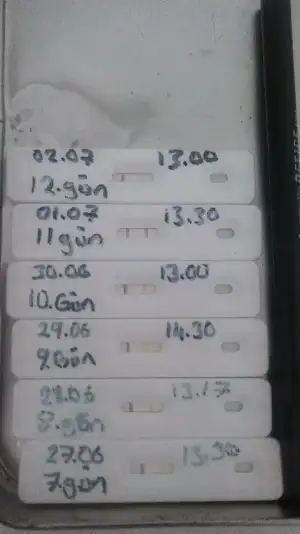 02.07 13.00
12.gün
01.07 13.30
11 gün
30.06 13.00
10.Gün
29.06 14.30
9.Gün
28.06 13.17
8.gün
27.06 13.30
7.gün